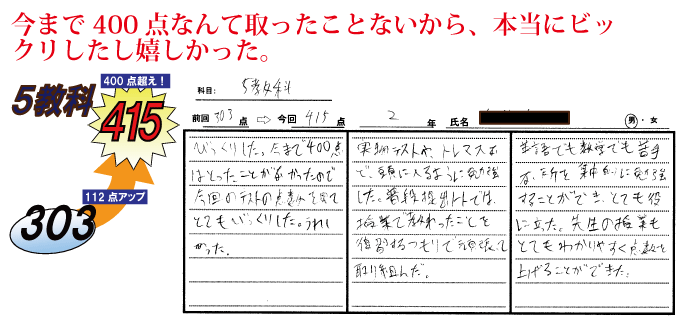 今まで400点なんて取ったことないから、本当にビッ
クリしたし嬉しかった。
5教科
400点超え！
415
112点アップ
303
科目: 5教科
前回 303 点 ⇨ 今回 415 点 2 年 氏名 男・女
びっくりした。今まで400点
はとったことがなかったので
今回のテストの点数を見て
とてもびっくりした。うれし
かった。
実力テストや、トレマスな
で、頭に入るように勉強
した。普段提出トレでは、
授業で教わったことを
復習するつもりで頑張って
取り組んだ。
英語でも数学でも苦手
な所を集中的に勉強
することができ、とても役
に立った。先生の授業も
とてもわかりやすく点数を
上げることができた。